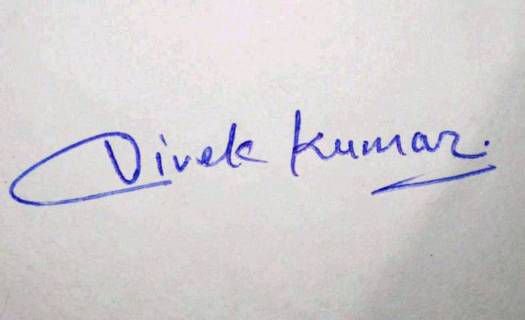 Vivek Kumar.